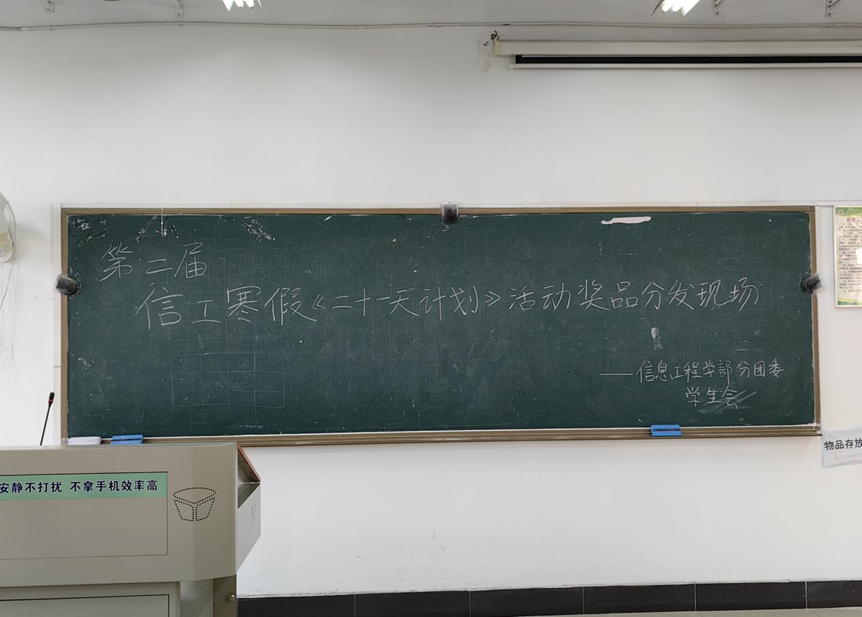 第二届
信工寒假《二十一天计划》活动奖品分发现场
——信息工程学部分团委
学生会
物品存放
安静不打扰 不拿手机效率高